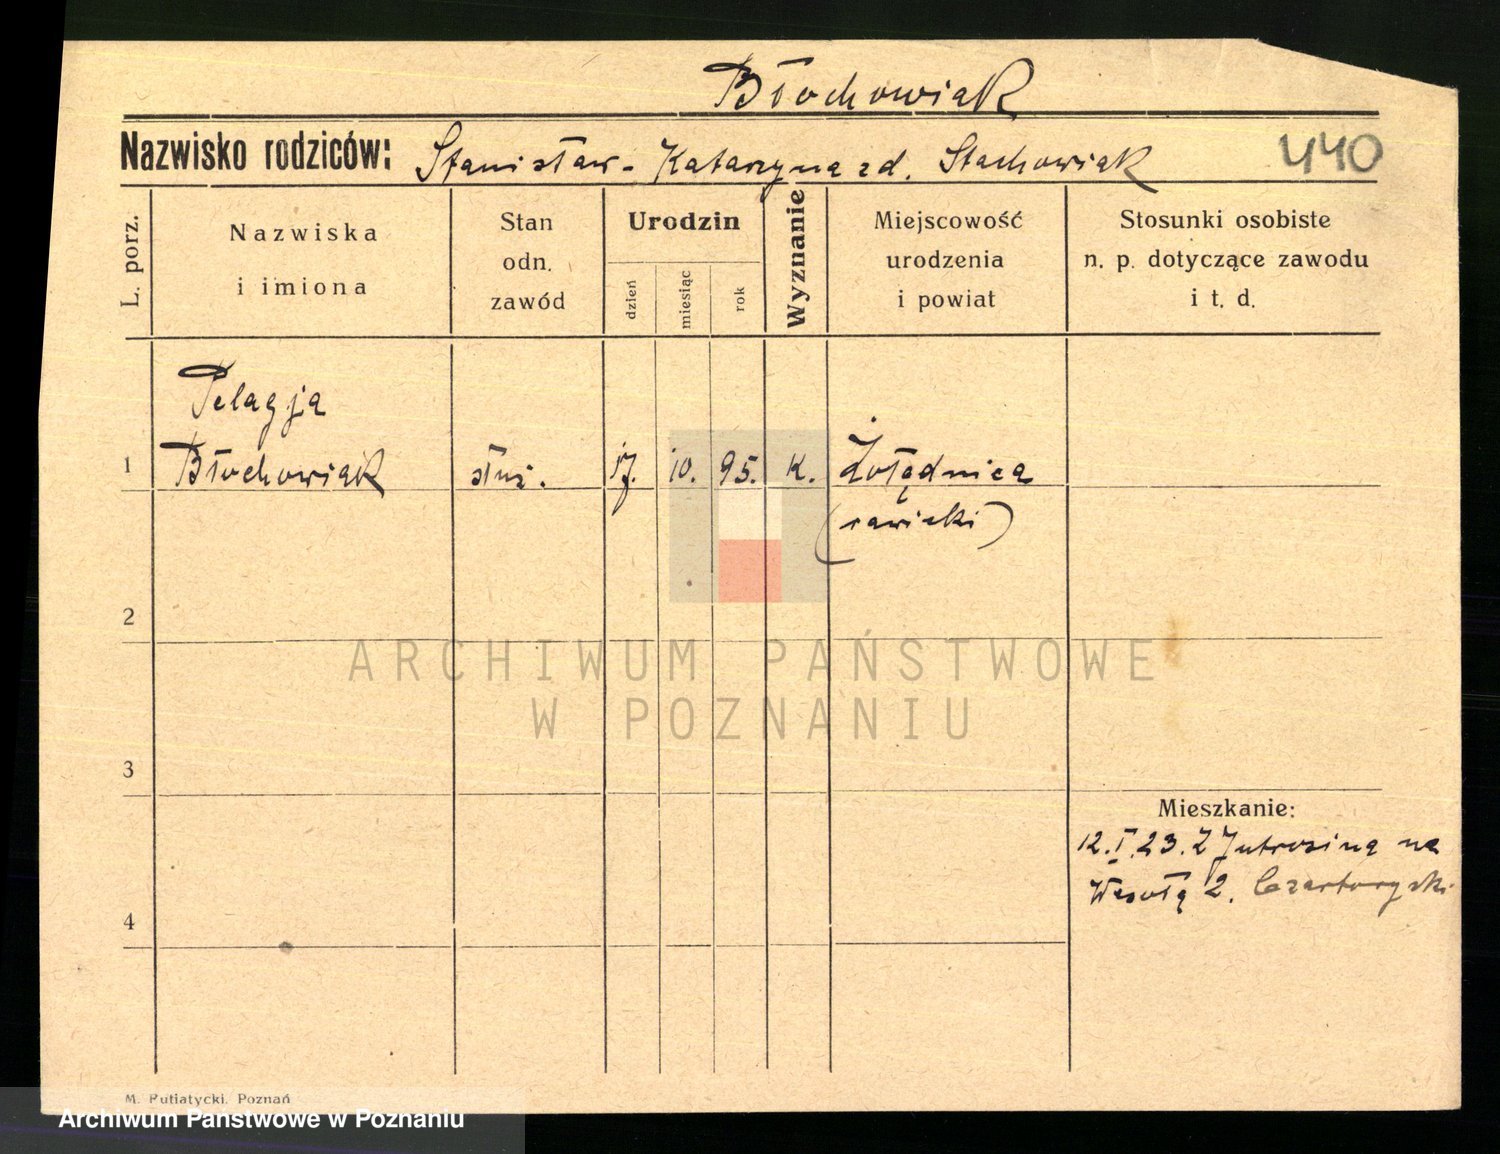 Błochowiak
Nazwisko rodziców: Stanisław - Katarzyna zd. Stachowiak
440
L. porz.
Nazwiska
i imiona
Stan
odn.
zawód
Urodzin
dzień
miesiąc
rok
Wyznanie
Miejscowość
urodzenia
i powiat
Stosunki osobiste
n. p. dotyczące zawodu
i t. d.
Pelagja
1 Błochowiak służ. 17. 10. 95. K. Żołędnica
(rawicki)
2
ARCHIWUM PAŃSTWOWE
W POZNANIU
3
Mieszkanie:
12.I.23. Z Jutrosina na
Wesołą 2. Czartoryski
4
M. Putiatycki. Poznań
Archiwum Państwowe w Poznaniu